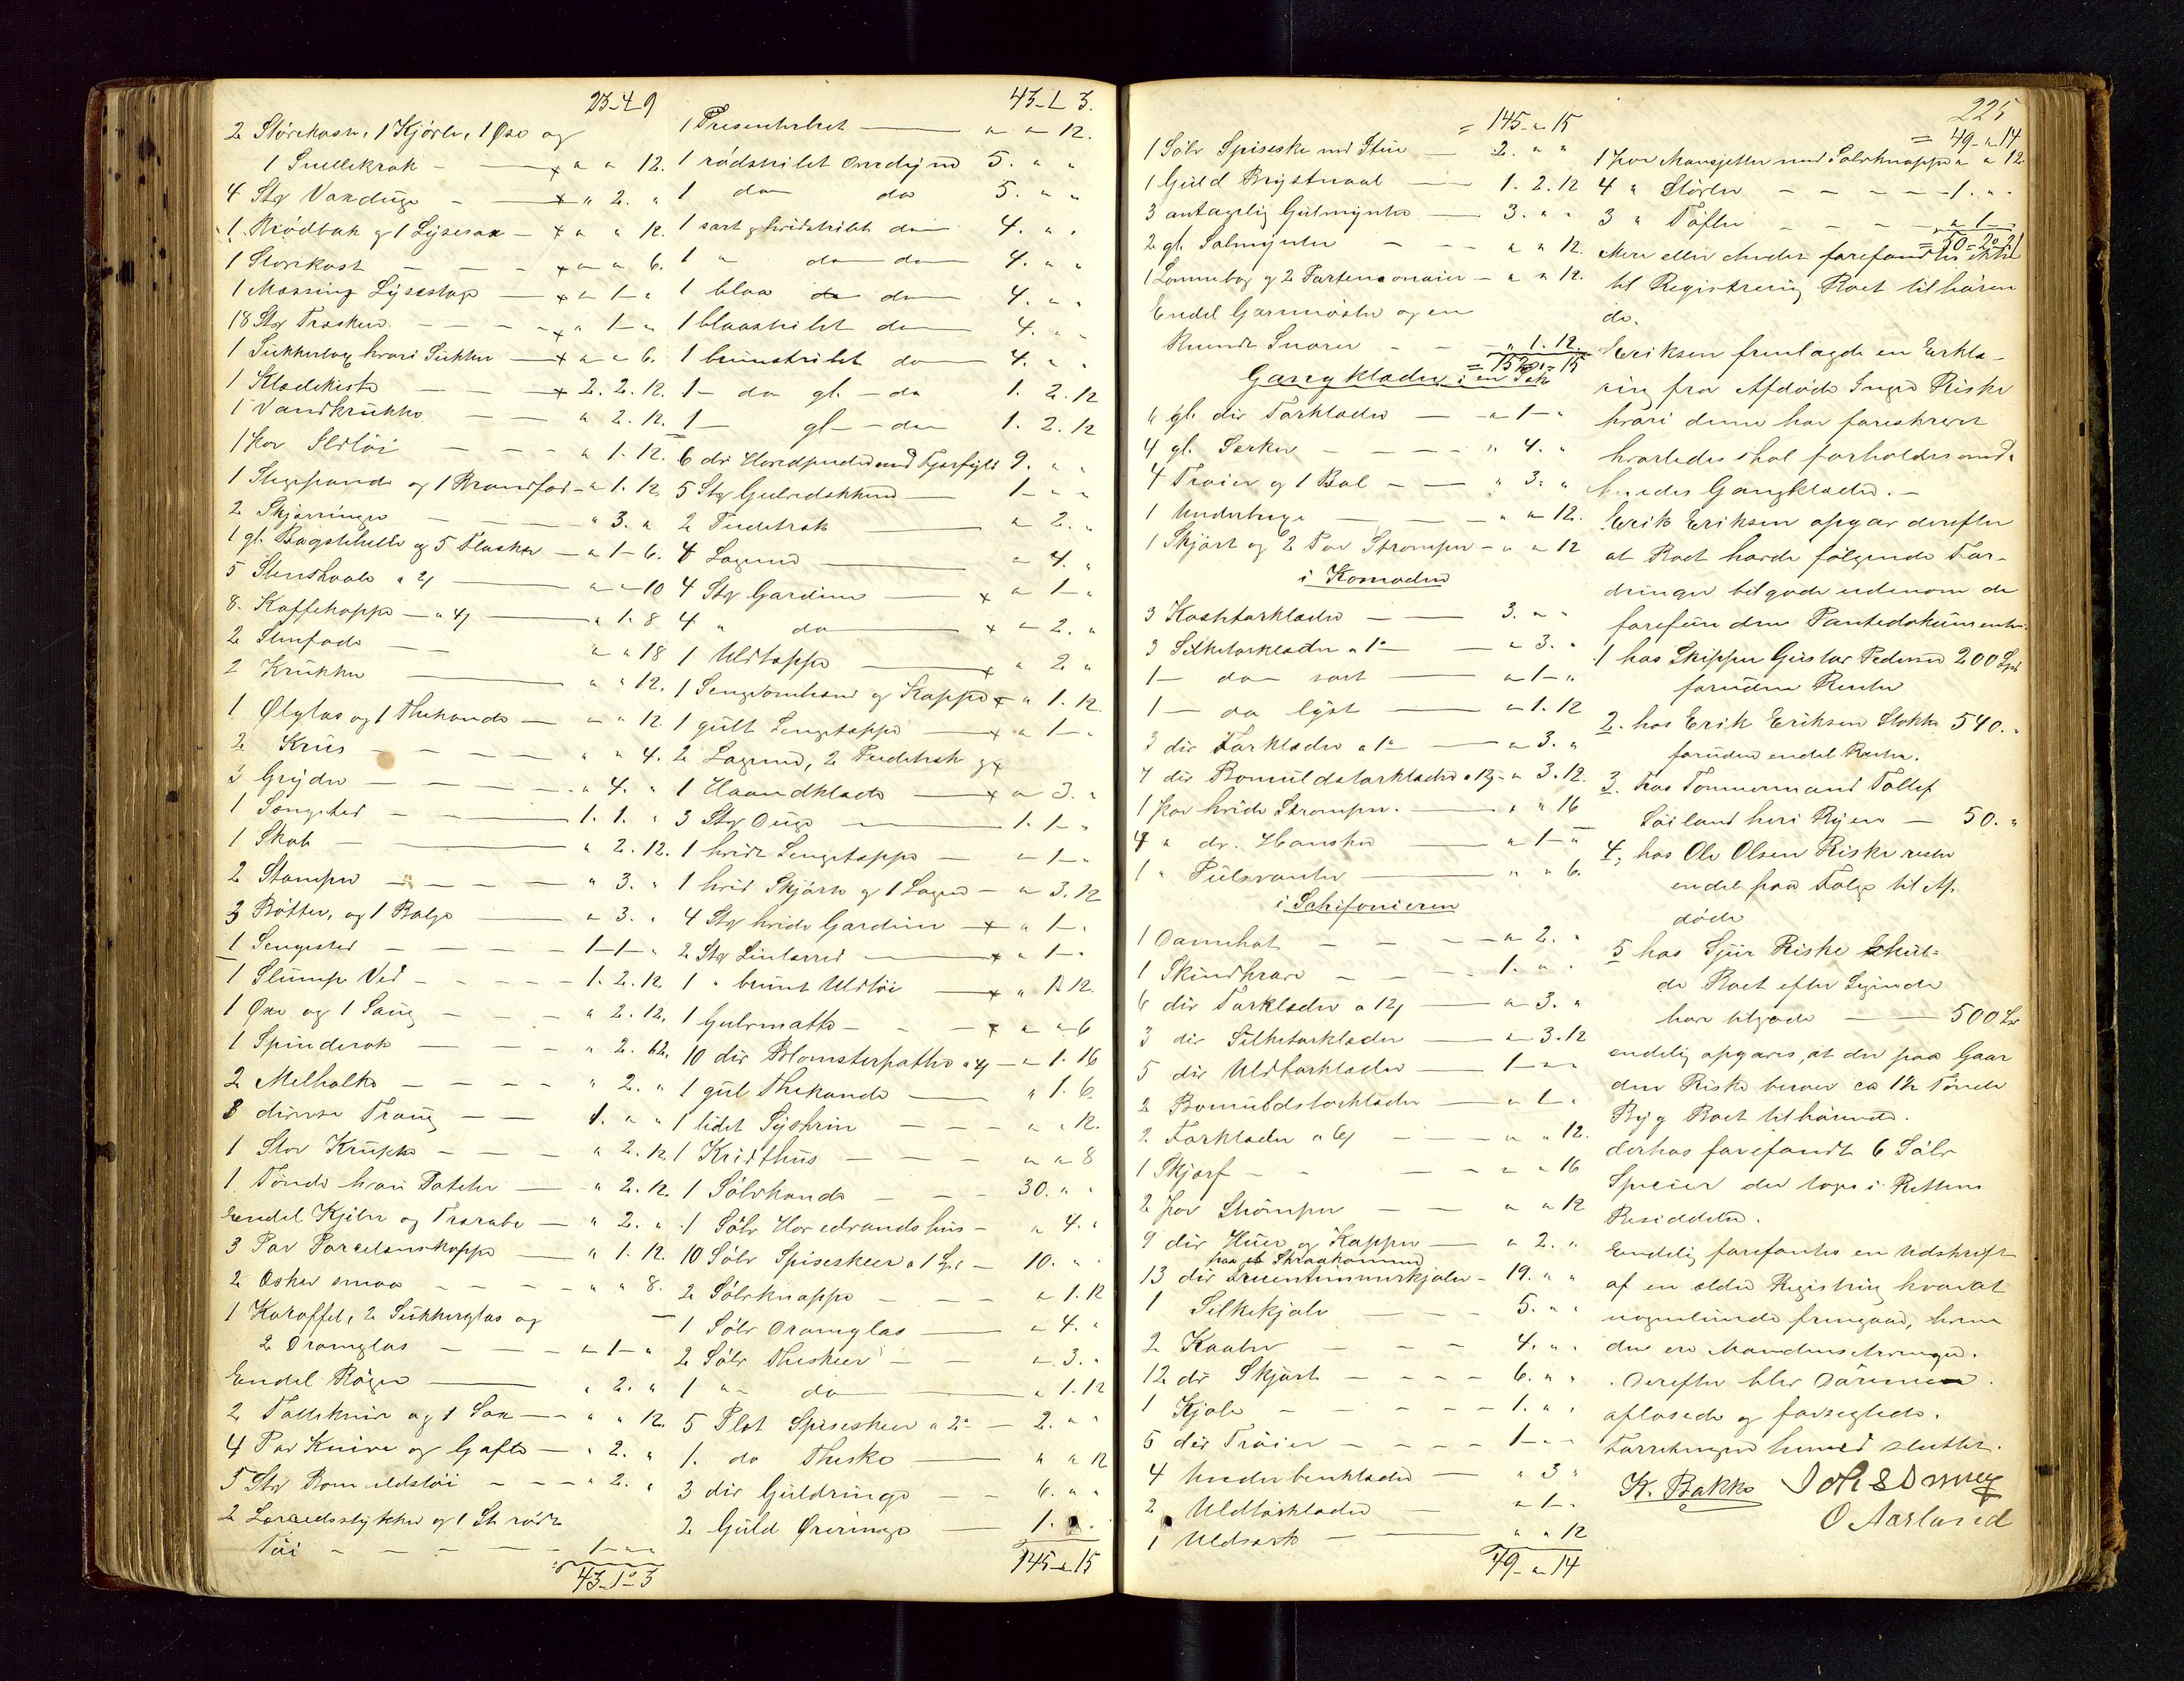 23-4-9
2 Störekaste, 1 Kjörle, 1 Øse og
1 Snellekrak - x " " 12.
4 Stkr Vandüge - x " 2. "
1 Brödbak og 1 Lysesax - x " " 12.
1 Storekast - - - x " " 6.
1 Messing Lysestage - x " 1 - "
18 Stkr Træskeer - - - x " 1 - "
1 Sukkerbox hvori Sukker - x " " 6.
1 Klædekiste - - x 2. 2. 12.
1 Vandkrukke - - " 2. 12.
1 par Ildtöi - - - " 1. 12.
1 Stegepande og 1 Brandfad - " 1. 12.
2 Skjæringer - - " 3. "
1 gl. Bagstehelle og 5 Flasker - " 1 - 6.
5 Stenskaale a 2 - " " 10
8. Kaffekoppe - a 4 - " 1. 8
2 Stenfade - - " " 18
2 Krukker - " " 12.
1 Ølglas og 1 Thekande - " " 12.
2 Krüs - - - - " " 4.
3 Gryder - - - " 4. "
1 Sengested - - 1. 1. "
1 Skab - " 2. 12.
2 Stamper - - - - " 3. "
3 Bötter, og 1 Balge - " 3. "
1 Sengested - - - - 1 - 1 - "
1 Slump Ved - - - - 1. 2. 12.
1 Øxe og 1 Saug - - - " 2. 12.
1 Spinderok - - - " 2. 12.
2 Melholke - - - - " 2. "
8 diverse Traug - - 1. " "
1 Stor Krukke - - - " 2. 12
1 Tönde hvori Poteter - " 2. 12.
Endel Kjiler og Trærabe - " 2. "
3 Par Porcelænskoppe - " 1. 12.
2 Æsker smaa - - - - " " 8.
1 Karaffel, 2 Sukkerglas og
2 Dramglas - - - " 1 - "
Endel Böger - " 2. "
2 Tælleknive og 1 Sax - - " " 12.
4 Par Knive og Gafle - " 2. "
5 Stkr Bomuldstöi - - - " 2. "
2 Lærredsstykker og 1 St rödt
Töi - - - - - 1 - " "
43-1-3
43-1 3.
1 Presenterbret - " " 12.
1 rödstribet Overdyne 5. " "
1 do do 5. " "
1 sort og hvidstribt do 4. " "
1 " do do 4. " "
1 blaa do do 4. " "
1 blaastribet do 4. " "
1 brunstribet do 4. " "
1 - do gl. - do 1. 2. 12
1 - gl - do 1. 2. 12
6 dir Hovedpuder med Fjærfyld 9. " "
5 Stkr Gulvdækkener - 1 - " "
2 Pudetræk - " 2. "
4 Lagener - " 4. "
4 Stkr Gardiner - x " 1 - "
4 " do - x " 2. "
1 Uldtæppe - x " 2 "
1 Sengeomhæng og Kappe x " 1. 12.
1 gült Sengetæppe - x " 1 - "
2 Lagener, 2 Pudetræk og x
1 Haandklæde - x " 3. "
3 Stkr Duge - 1. 1 - "
1 hvidt Sengetæppe - " 1 - "
1 hvid Skjört og 1 Lagen - " 3. 12
4 Stkr hvide Gardiner - x " 1 - "
2 Stkr Linlærred - x " 1 - "
1 " brünt Uldtöi - x " 1. 12.
1 Gulvmatte - - - x " " 6
10 dir Blomsterpotter a 4 - " 1. 16
1 gül Thekande - " 1. 6.
1 lidet Syskrin - - - " " 12.
1 Kridthüs - - - " " 8
1 Sölvkande - - - 30. " "
1 Sölv Hovedvandshus - " 4. "
10 Sölv Spiseskeer a 1 Spd - 10. " "
2 Sölvknappe - - - " 1. 12
1 Sölv Dramglas - " 4. "
2 Sölv Theskeer - - " 3. "
1 " - do - " 1. 12
5 Plet Spiseskeer a 2 - 2. " "
1. do Theske - " " 12
3 dir Güldringe - - 6. " "
2 Güld Øreringe - 1. " "
145 - " 15
225
= 145 - " 15
1 Sölv Spiseske med Etui - 2. " "
1 Guld Brystnaal - 1. 2. 12
3 antagelig Gülmynter - 3. " "
2 gl. Sølmynter - - - " " 12.
1 Lommebog og 2 Portemonaier - " " 12.
Endel Garnnöster og en
Rundt Snorer - - - " 1. 12.
= 152 - " 15
Gangklæder i en Sæk
6 gl. dir Törklæder - - " 1 - "
4 gl. Særker - - - - " 4. "
4 Tröier og 1 Bul - - " 3. "
1 Underbuxe - - " " 12.
1 Skjört og 2 Par Strømper - " " 12
i Komoden
3 Kastetørklæder - - 3. " "
3 Silketørklæder a 1 - - " 3. "
1 - do sort - " 1 - "
1 - do lyst - " 1. 12
3 dir Tørklæder a 1 - " 3. "
7 dir Bomuldstørklæder a 12 - " 3. 12.
1 par hvide Strømper. - " " 16
4 " dr. Hansker - " 1 - "
1 " Pülsvanter - " " 6.
i Schifonieren
1 Damehat - - - - " 2. "
1 Skindkrave - - - 1. " "
6 dir Tørklæder a 12 - " 3. "
3 dir Silketørklæder - " 3. 12
5 dir Uldtørklæder - 1 - " "
2 Bomuldstørklæder - " 1 - "
2 Tørklæder a 6 - - " " 12.
1 Skjærf - - - - " " 16
2 par Strömper - - " " 12
9 dir Huer og Kapper - " 2. "
paa et Skraakammer
13 dir Fruentimmerkjoler - 19. " "
1 Silkekjole - - - 5. " "
2 Kaaber - - - 4. " "
12 dr Skjört - - - - 6. " "
1 Kjole - - - - - - 1. " "
5 dir Tröier - - - - 1 - " -
4 Underbenklæder - " 3 "
2 Uldtørklæder - " 1 - "
1 Uldsærk - " " 12
49 - " 14
= 49 - " 14
1 par Mansjetter med Sølvknapper " " 12.
4 " Stövler - - - - - 1. " "
3 " Töfler - - - - " 1 -
= 50 = 2 = 2
Mere eller Andet forefandtes ikke
til Registrering Boet tilhören
de.
Eriksen fremlagde en Erklæ-
ring fra Afdøde Inger Riske
hvori denne har foreskrevet
hvorledes skal forholdes med
hendes Gangklæder. -
Erik Eriksen opgav derefter
at Boet havde følgende For-
dringer tilgode udenom de
forefundne Pantedokumenter:
1 hos Skipper Gustav Pedersen 200 Spd
foruden Renter
2. hos Erik Eriksen Stokke 540. "
foruden endel Renter.
3. hos Tømmermand Tollef
Søiland heri Byen - 50. "
4, hos Ole Olsen Riske rester
endel paa Følge til Af-
döde
5 hos Sjur Riske skul-
de Boet efter Sigende
have tilgode - 500 Spd
endelig opgaves, at der paa Gaar
den Riske beroer ca 1½ Tønde
Byg Boet tilhørende.
derhos forefandt 6 Sølv
Specier der toges i Rettens
Besiddelse.
Endelig forefantes en Udskrift
af en ældre Registring hvoraf
nogenlunde fremgaar, hvem
der ere Mandens Arvinger.
Derefter blev Dørene
aflaasede og forseglede.
Forretningen hermed sluttet.
K. Bakke
O Aarland